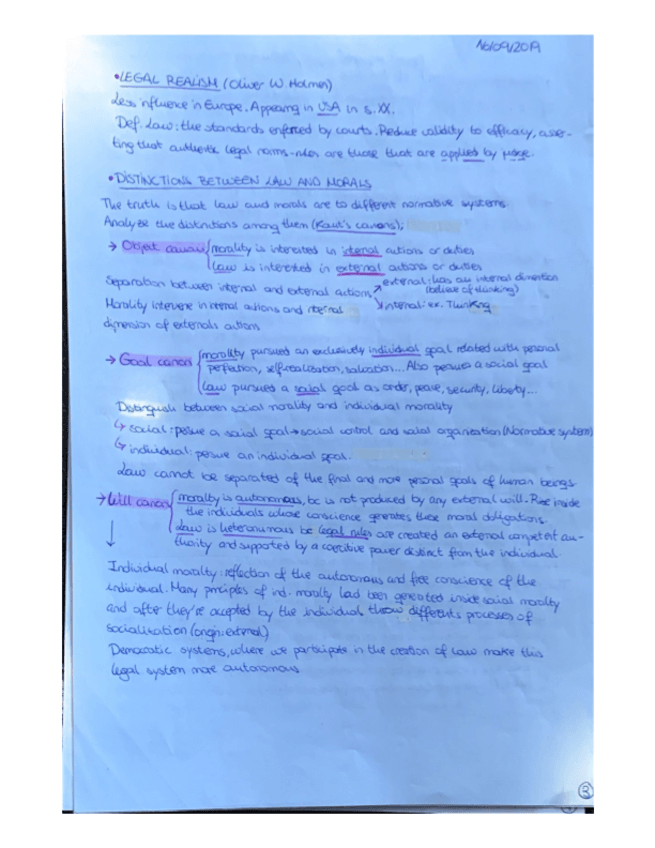 16/09/2019
•LEGAL REALISM (Oliver W Holmen)
Less influence in Europe. Appearing in USA in s.XX.
Def. Law: the standards enforced by courts. Reduce validity to efficacy, asser-
ting that authentic legal norms-rules are those that are applied by judge.
•DISTINCTIONS BETWEEN LAW AND MORALS
The truth is that law and morals are to different normative systems
Analyze the distinctions among them (Kant's canons);
→ Object canon { morality is interested in internal actions or duties
law is interested in external actions or duties
Separation between internal and external actions ↗ external: has an internal dimension
(believe of thinking)
↘ internal: ex. Thinking
Morality intervene in internal actions and internal
dimension of externals actions
→ Goal canon { morality pursued an exclusively individual goal related with personal
perfection, selfrealisation, salvation... Also persues a social goal
law pursued a social goal as order, peace, security, liberty...
Distinguish between social morality and individual morality
↳ social: persue a social goal → social control and social organisation (Normative system)
↳ individual: persue an individual goal.
Law cannot be separated of the final and more personal goals of human beings.
→ Will canon { morality is autonomous, bc is not produced by any external will. Rise inside
the individuals whose conscience generates these moral obligations.
law is heteronomous bc legal rules are created an external competent au-
thority and supported by a coercitive power distinct from the individual
↓
Individual morality: reflection of the autonomous and free conscience of the
individual. Many principles of ind. morality had been generated inside social morality
and after they're accepted by the individual throw differents processes of
socialisation (origin: external)
Democratic systems, where we participate in the creation of law make this
legal system more autonomous.
3